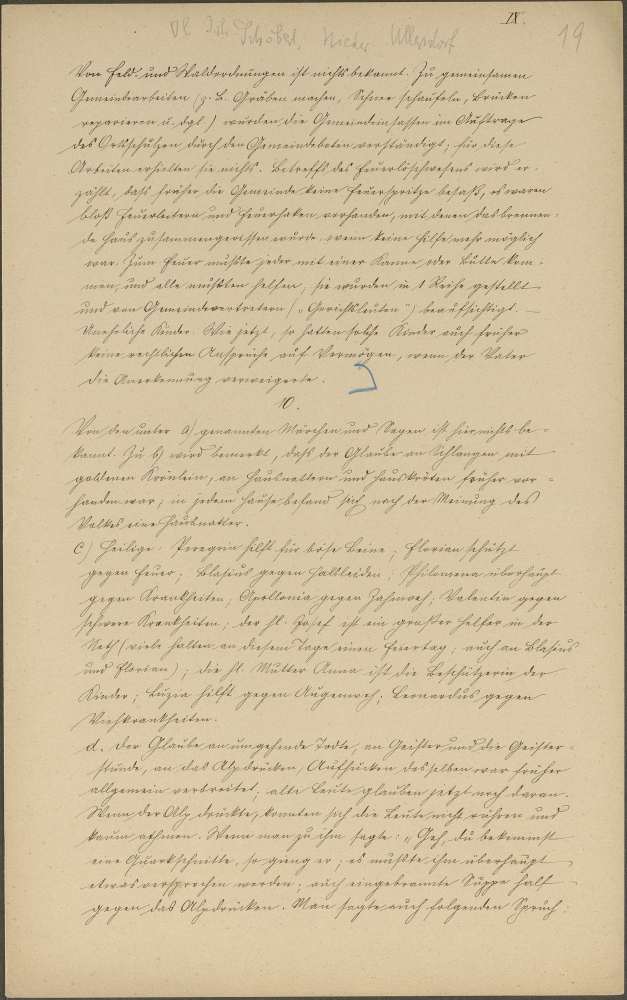 IX.
Joh. Schöbel, Nieder Ullersdorf 19
Von Feld- und Waldordnungen ist nichts bekannt. Zu gemeinsamen
Gemeindearbeiten (z. B. Gräben machen, Schnee schaufeln, Brücken
reparieren u. dgl.) wurden die Gemeindeinsassen im Auftrage
des Ortsschulzen durch den Gemeindeboten verständigt; für diese
Arbeiten erhielten sie nichts. Betreffs des Feuerlöschwesens wird er-
zählt, dass früher die Gemeinde keine Feuerspritze besaß, es waren
bloß Feuerleitern und Feuerhaken vorhanden, mit denen das brennen-
de Haus zusammengerissen wurde, wenn keine Hilfe mehr möglich
war. Zum Feuer mußte jeder mit einer Kanne oder Butte kom-
men, und alle mußten helfen; sie wurden in 1 Reihe gestellt
und von Gemeindevertretern („Gerichtsleuten") beaufsichtigt. —
Uneheliche Kinder. Wie jetzt, so hatten solche Kinder auch früher
keine rechtlichen Ansprüche auf Vermögen, wenn der Vater
die Anerkennung verweigerte.
10.
Von den unter a) genannten Märchen und Sagen ist hier nichts be-
kannt. Zu b) wird bemerkt, daß der Glaube an Schlangen mit
goldenen Krönlein, an Hausnattern und Hauskröten früher vor-
handen war; in jedem Hause befand sich nach der Meinung des
Volkes eine Hausnatter.
c) Heilige. Peregrin hilft für böse Beine; Florian schützt
gegen Feuer; Blasius gegen Halsleiden; Philomena überhaupt
gegen Krankheiten; Apollonia gegen Zahnweh; Valentin gegen
schwere Krankheiten; der hl. Josef ist ein großer Helfer in der
Noth (viele halten an diesem Tage einen Feiertag; auch an Blasius
und Florian); die hl. Mutter Anna ist die Beschützerin der
Kinder; Luzia hilft gegen Augenweh; Leonardus gegen
Viehkrankheiten.
d. Der Glaube an umgehende Todte, an Geister und die Geister-
stunde, an das Alpdrücken, Aufhucken desselben war früher
allgemein verbreitet; alte Leute glauben jetzt noch daran.
Wenn der Alp drückte, konnten sich die Leute nicht rühren und
kaum athmen. Wenn man zu ihm sagte: „Geh, du bekommst
eine Quarkschnitte, so gieng er; es mußte ihm überhaupt
etwas versprochen werden; auch eingebrannte Suppe half
gegen das Alpdrücken. Man sagte auch folgenden Spruch: